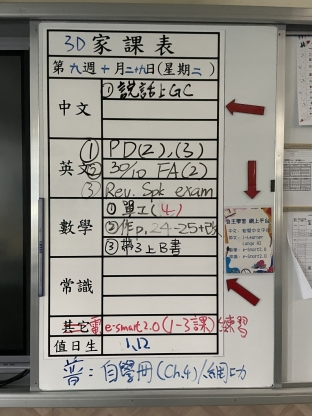 3D 家課表
第九週十月二十九日(星期二)
中文
① 說話上GC
英文
① PD(2),(3)
② 30/10 FA(2)
③ Rev. Spk exam
數學
① 單工(4)
② 作P.24-25+改
③ 帶3上B書
常識
其它 電 e-smart 2.0 (1-3課)練習
值日生
1,12
普：自學冊(Ch.4)/網功
自主學習 網上平台